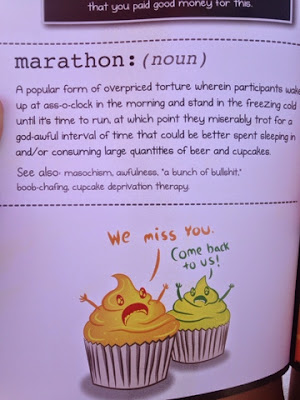 that you paid good money for this.
marathon: (noun)
A popular form of overpriced torture wherein participants wake
up at ass-o-clock in the morning and stand in the freezing cold
until it's time to run, at which point they miserably trot for a
god-awful interval of time that could be better spent sleeping in
and/or consuming large quantities of beer and cupcakes.
See also: masochism, awfulness, "a bunch of bullshit,"
boob-chafing, cupcake deprivation therapy.
We miss you.
Come back
to us!